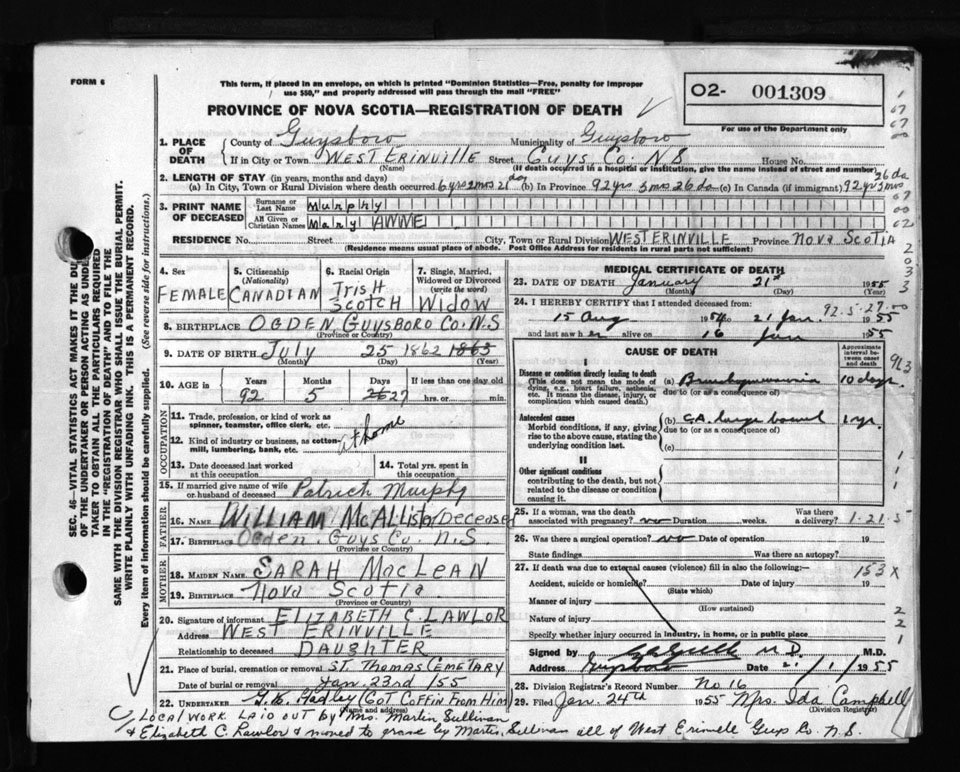 FORM 6
This form, if placed in an envelope, on which is printed "Dominion Statistics—Free, penalty for improper
use $50," and properly addressed will pass through the mail "FREE"
PROVINCE OF NOVA SCOTIA—REGISTRATION OF DEATH
O2- 001309
For use of the Department only
SEC. 46—VITAL STATISTICS ACT MAKES IT THE DUTY
OF THE UNDERTAKER OR PERSON ACTING AS UNDERTAKER
TAKER TO OBTAIN ALL THE PARTICULARS REQUIRED
IN THE "REGISTRATION OF DEATH" AND TO FILE THE
SAME WITH THE DIVISION REGISTRAR WHO SHALL ISSUE THE BURIAL PERMIT.
WRITE PLAINLY WITH UNFADING INK. THIS IS A PERMANENT RECORD.
Every item of information should be carefully supplied. (See reverse side for instructions.)
1. PLACE OF DEATH County of Guysboro Municipality of Guysboro
If in City or Town WEST ERINVILLE Street GUYS. CO. N S House No.
(Name) (If death occurred in a hospital or institution, give the name instead of street and number)
2. LENGTH OF STAY (in years, months and days)
(a) In City, Town or Rural Division where death occurred 6 yrs 2 mos 21 day (b) In Province 92 yrs 5 mos 26 da (c) In Canada (if immigrant) 92 yrs 5 mos 26 da
3. PRINT NAME OF DECEASED Surname or Last Name Murphy
All Given or Christian Names Mary ANNIE
RESIDENCE No. Street City, Town or Rural Division WEST ERINVILLE Province NOVA SCOTIA
(Residence means usual place of abode. Post Office Address for residents in rural parts not sufficient)
4. Sex FEMALE
5. Citizenship (Nationality) CANADIAN
6. Racial Origin IRISH SCOTCH
7. Single, Married, Widowed or Divorced (write the word) WIDOW
8. BIRTHPLACE OGDEN GUYSBORO CO. N.S
(Province or Country)
9. DATE OF BIRTH July 25 1862 1863
(Month) (Day) (Year)
10. AGE in Years Months Days If less than one day old
92 5 26 27 hrs. or min.
OCCUPATION
11. Trade, profession, or kind of work as
spinner, teamster, office clerk, etc. at home
12. Kind of industry or business, as cotton-
mill, lumbering, bank, etc.
13. Date deceased last worked
at this occupation
14. Total yrs. spent in
this occupation
15. If married give name of wife
or husband of deceased Patrick Murphy
FATHER
16. NAME WILLIAM MCALLISTER/Deceased
17. BIRTHPLACE Ogden. Guys Co. N.S.
(Province or Country)
MOTHER
18. MAIDEN NAME SARAH MACLEAN
19. BIRTHPLACE NOVA SCOTIA
(Province or Country)
20. Signature of informant ELIZABETH C. LAWLOR
Address WEST ERINVILLE
Relationship to deceased DAUGHTER
21. Place of burial, cremation or removal ST. THOMAS CEMETARY
Date of burial or removal Jan. 23rd /55
22. UNDERTAKER G.K. Hadley (GOT COFFIN FROM HIM)
(Name and address)
MEDICAL CERTIFICATE OF DEATH
23. DATE OF DEATH January 21st 1955
(Month) (Day)
24. I HEREBY CERTIFY that I attended deceased from: 92.5-27.00
15 Aug 1954 to 21 Jan 1955
and last saw her alive on 16 Jan 1955
CAUSE OF DEATH
Approximate interval between onset and death
I
Disease or condition directly leading to death
(This does not mean the mode of dying, e.g., heart failure, asthenia, etc. It means the disease, injury, or complication which caused death.)
(a) Bronchopneumonia 10 days
due to (or as a consequence of)
Antecedent causes
Morbid conditions, if any, giving rise to the above cause, stating the underlying condition last.
(b) CA. large bowel 1 yr.
due to (or as a consequence of)
(c)
II
Other significant conditions
contributing to the death, but not related to the disease or condition causing it.
25. If a woman, was the death
associated with pregnancy? no Duration weeks. Was there a delivery? 1-21-5
26. Was there a surgical operation? no Date of operation 19
State findings Was there an autopsy?
27. If death was due to external causes (violence) fill in also the following:— 153 X
Accident, suicide or homicide? Date of injury 19
(State which)
Manner of injury
(How sustained)
Nature of injury
Specify whether injury occurred in industry, in home, or in public place
Signed by M.D. M.D.
Address Guysboro Date 21/1/1955
28. Division Registrar's Record Number No 16
29. Filed Jan. 24th 1955 Mrs. Ida Campbell
(Division Registrar)
LOCAL WORK LAID OUT by Mrs. Martin Sullivan
& Elizabeth C. Lawlor & moved to grave by Martin Sullivan all of West Erinville Guys Co. N.S.